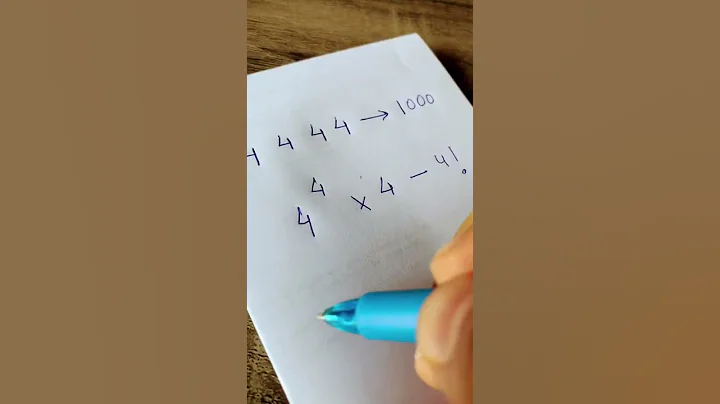 4 4 4 4 → 1000
4⁴ × 4 - 4!